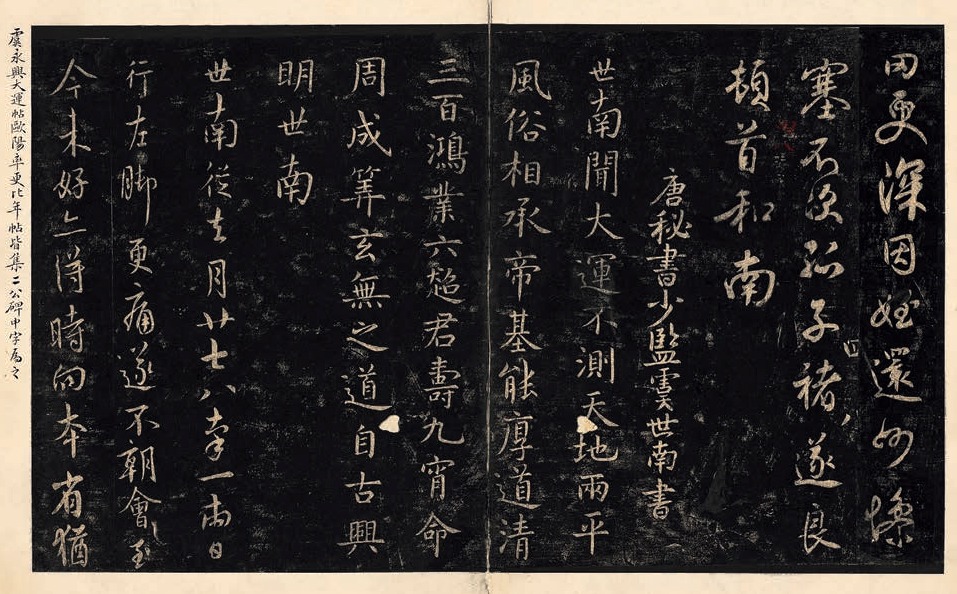 因更深因姪還此慘
塞不次孤子褚遂良
頓首和南
唐秘書少監虞世南書
世南聞大運不測天地兩平
風俗相承帝基能厚道清
三百鴻業六超君壽九霄命
周成筭玄無之道自古興
明世南
世南從去月廿七八率一兩日
行左脚更痛遂不朝會至
今未好亦得時向本省猶
虞永興大運帖歐陽率更比年帖皆集二公碑中字為之